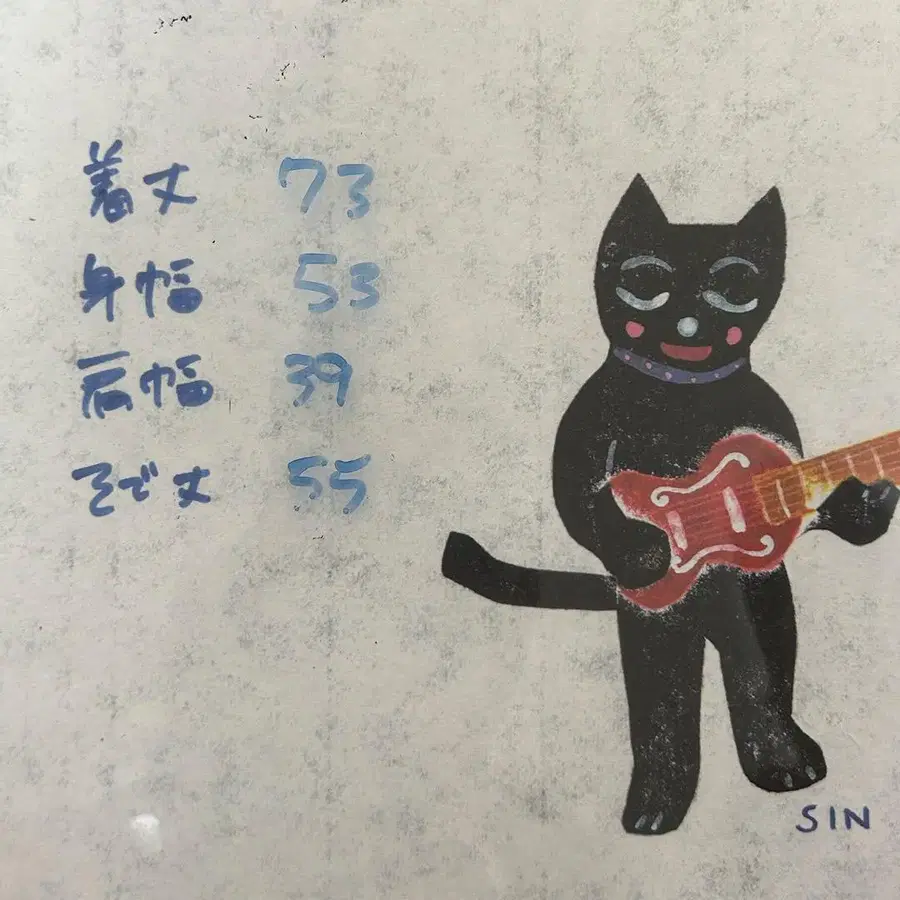 着丈 73
身幅 53
肩幅 39
そで丈 55
SIN